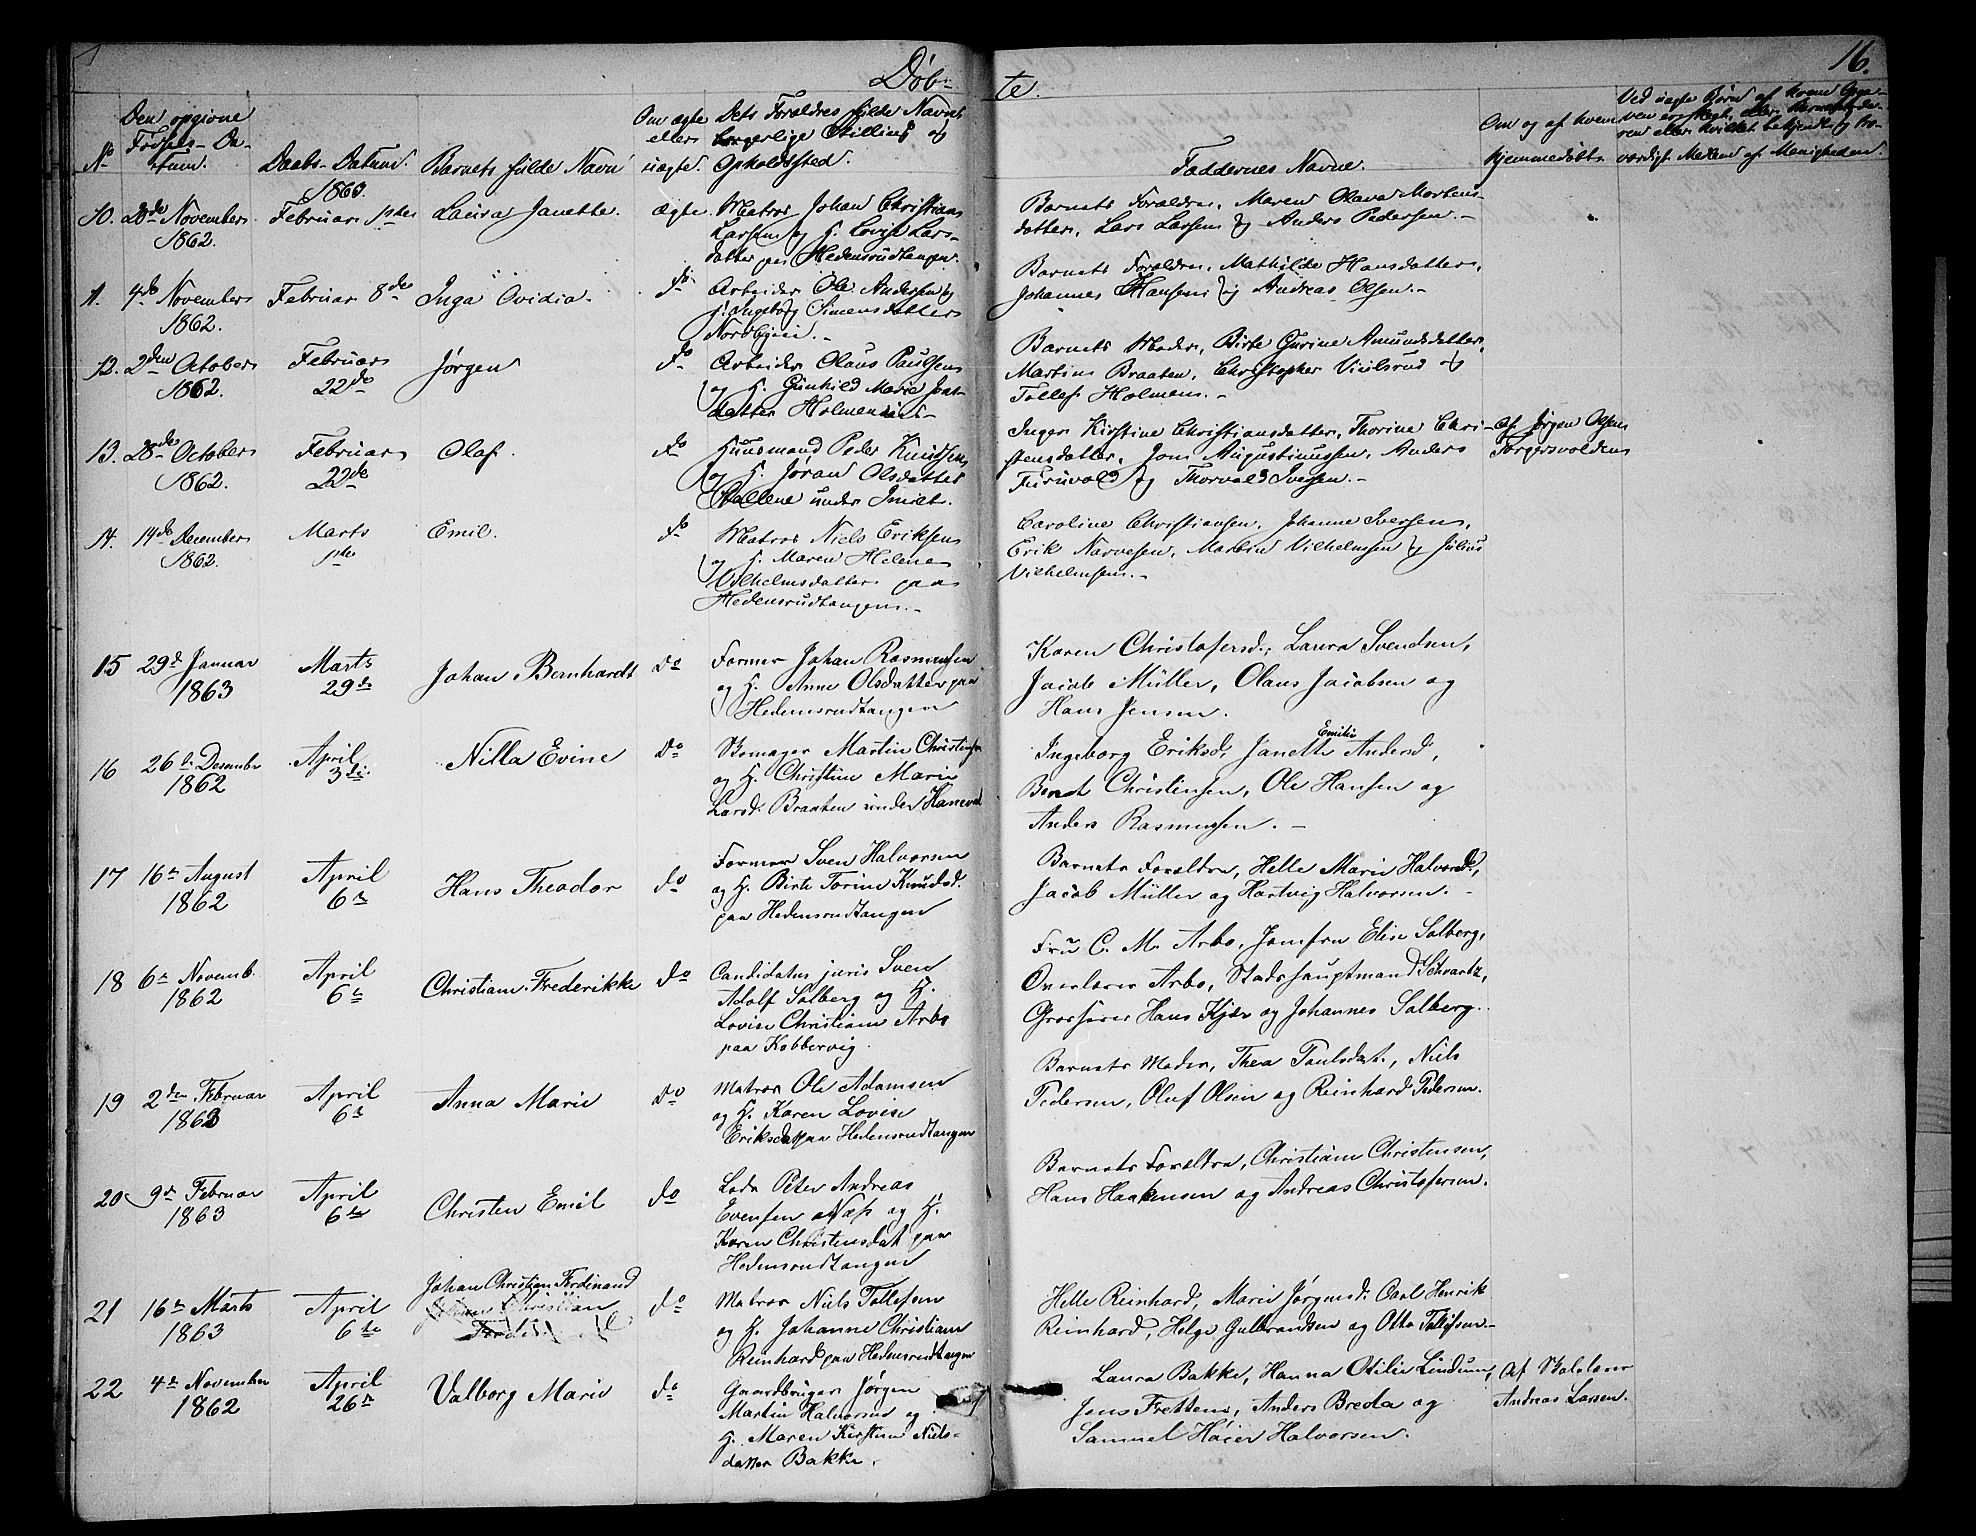 Døb-
te.
16.
No
Den opgivne
Fødsels-Da-
tum.
Daabs-Datum.
Barnets fulde Navn
Om ægte
eller
uægte.
Dets Forældres fulde Navne
borgerlige Stilling og
Opholdssted.
Faddernes Navne.
Om og af hvem
hjemmedøbt.
Ved uægte Børn af hvem
1863.
10. November
1862.
Februar 1ste
Laura Janette.
ægte.
Matros Johan Christian
Larsen og H. Lovise Lars-
datter paa Hedensrudtangen.
Barnets Forældre, Maren Olava Mortens-
datter, Lars Larsen og Anders Pedersen.-
11. 4de November
1862.
Februar 8de
Inga Ovidia.
do
Arbeider Ole Andersen og
H. Ingeborg Simensdatter
Barnets Forældre, Mathilde Hansdatter,
Johannes Hansen og Andreas Olsen.-
12. 2den October
1862.
Februar
22de
Jørgen
do
Arbeider Olaus Paulsen
og H. Gunhild Marie
datter Holmen
Barnets Moder, Birte Gurine Amundsdatter,
Martin Braaten, Christopher og
Tollef Holmen.-
13. 28de October
1862.
Februar
22de
Olaf.
do
Huusmand Peder Knudsen
og H. Jøran Olsdatter
under
Inger Kirstine Christiansdatter, Thorine Chri-
stensdatter, Jons Augustinussen, Anders
Furuvald og Thorvald Iversen.-
Af Jørgen Olsen
Torgersvolden
14. 14de December
1862.
Marts
1ste
Emil.
do
Matros Niels Eriksen
og H. Maren Helene
Vilhelmsdatter paa
Hedensrudtangen.-
Caroline Christiansen, Johanne Iversen,
Erik Narvesen, Martin Vilhelmsen og Julius
Vilhelmsen.-
15 29d Januar
1863
Marts
29de
Johan Bernhardt
do
Former Johan Rasmussen
og H. Anne Olsdatter paa
Hedensrudtangen
Karen Christofersd., Laura Svendsen,
Jacob Müller, Olaus Jacobsen og
Hans Jensen.
16 26de December
1862
April
3die.
Nilla Evine
do
Martin Christensen
og H. Christine Marie
Larsd. Braaten under
Emilie
Ingeborg Eriksd, Janette Andersd,
Bernt Christensen, Ole Hansen og
Anders Rasmussen.-
17 16de August
1862
April
6te
Hans Theodor
do
Former Sven Halvorsen
og H. Birte Torine Knudsd.
paa Hedensrudtangen
Barnets Forældre, Helle Marie Halvorsd,
Jacob Müller og Hartvig Halvorsen.-
18 6te Novemb.
1862
April
6te
Christiane Frederikke
do
Candidatus juris Sven
Adolf Solberg og H.
Lovise Christiane Arbo
paa Kobbervig.
Fru C. M. Arbo, Jomfru Elise Solberg,
Overlærer Arbo, Stadshauptmand Schwartz,
Grosserer Hans Kjær og Johannes Solberg.
19 2den Februar
1863
April
6te
Anna Marie
do
Matros Ole Adamsen
og H. Karen Lovise
Eriksdat paa Hedensrudtangen
Barnets Moder, Thea Paulsdat., Niels
Pedersen, Oluf Olsen og Reinhard Pedersen.
20 9de Februar
1863
April
6te
Christen Emil
do
Lods Peter Andreas
Evensen af Næs og H.
Karen Christensdat paa
Hedensrudtangen
Barnets Forældre, Christiane Christensen,
Hans Haakensen og Andreas Christofersen.
21 16de Marts
1863
April
6te
Johan Christian Ferdinand
do
Matros Niels Tollefsen
og H. Johanne Christiane
Reinhard paa Hedensrudtangen
Helle Reinhard, Marie Jørgensd. Carl Henrik
Reinhard, Helge Gulbrandsen og Otto Tollefsen.-
22 4de November
1862
April
26de
Valborg Marie
do
Gaardbruger Jørgen
Martin Halvorsen og
H. Maren Kirstine Niels-
datter Bakke.
Laura Bakke, Hanna Otilie Lindum,
Jens Fretten, Anders Breda og
Samuel Høier Halvorsen.
Af Skolelærer
Andreas Larsen.